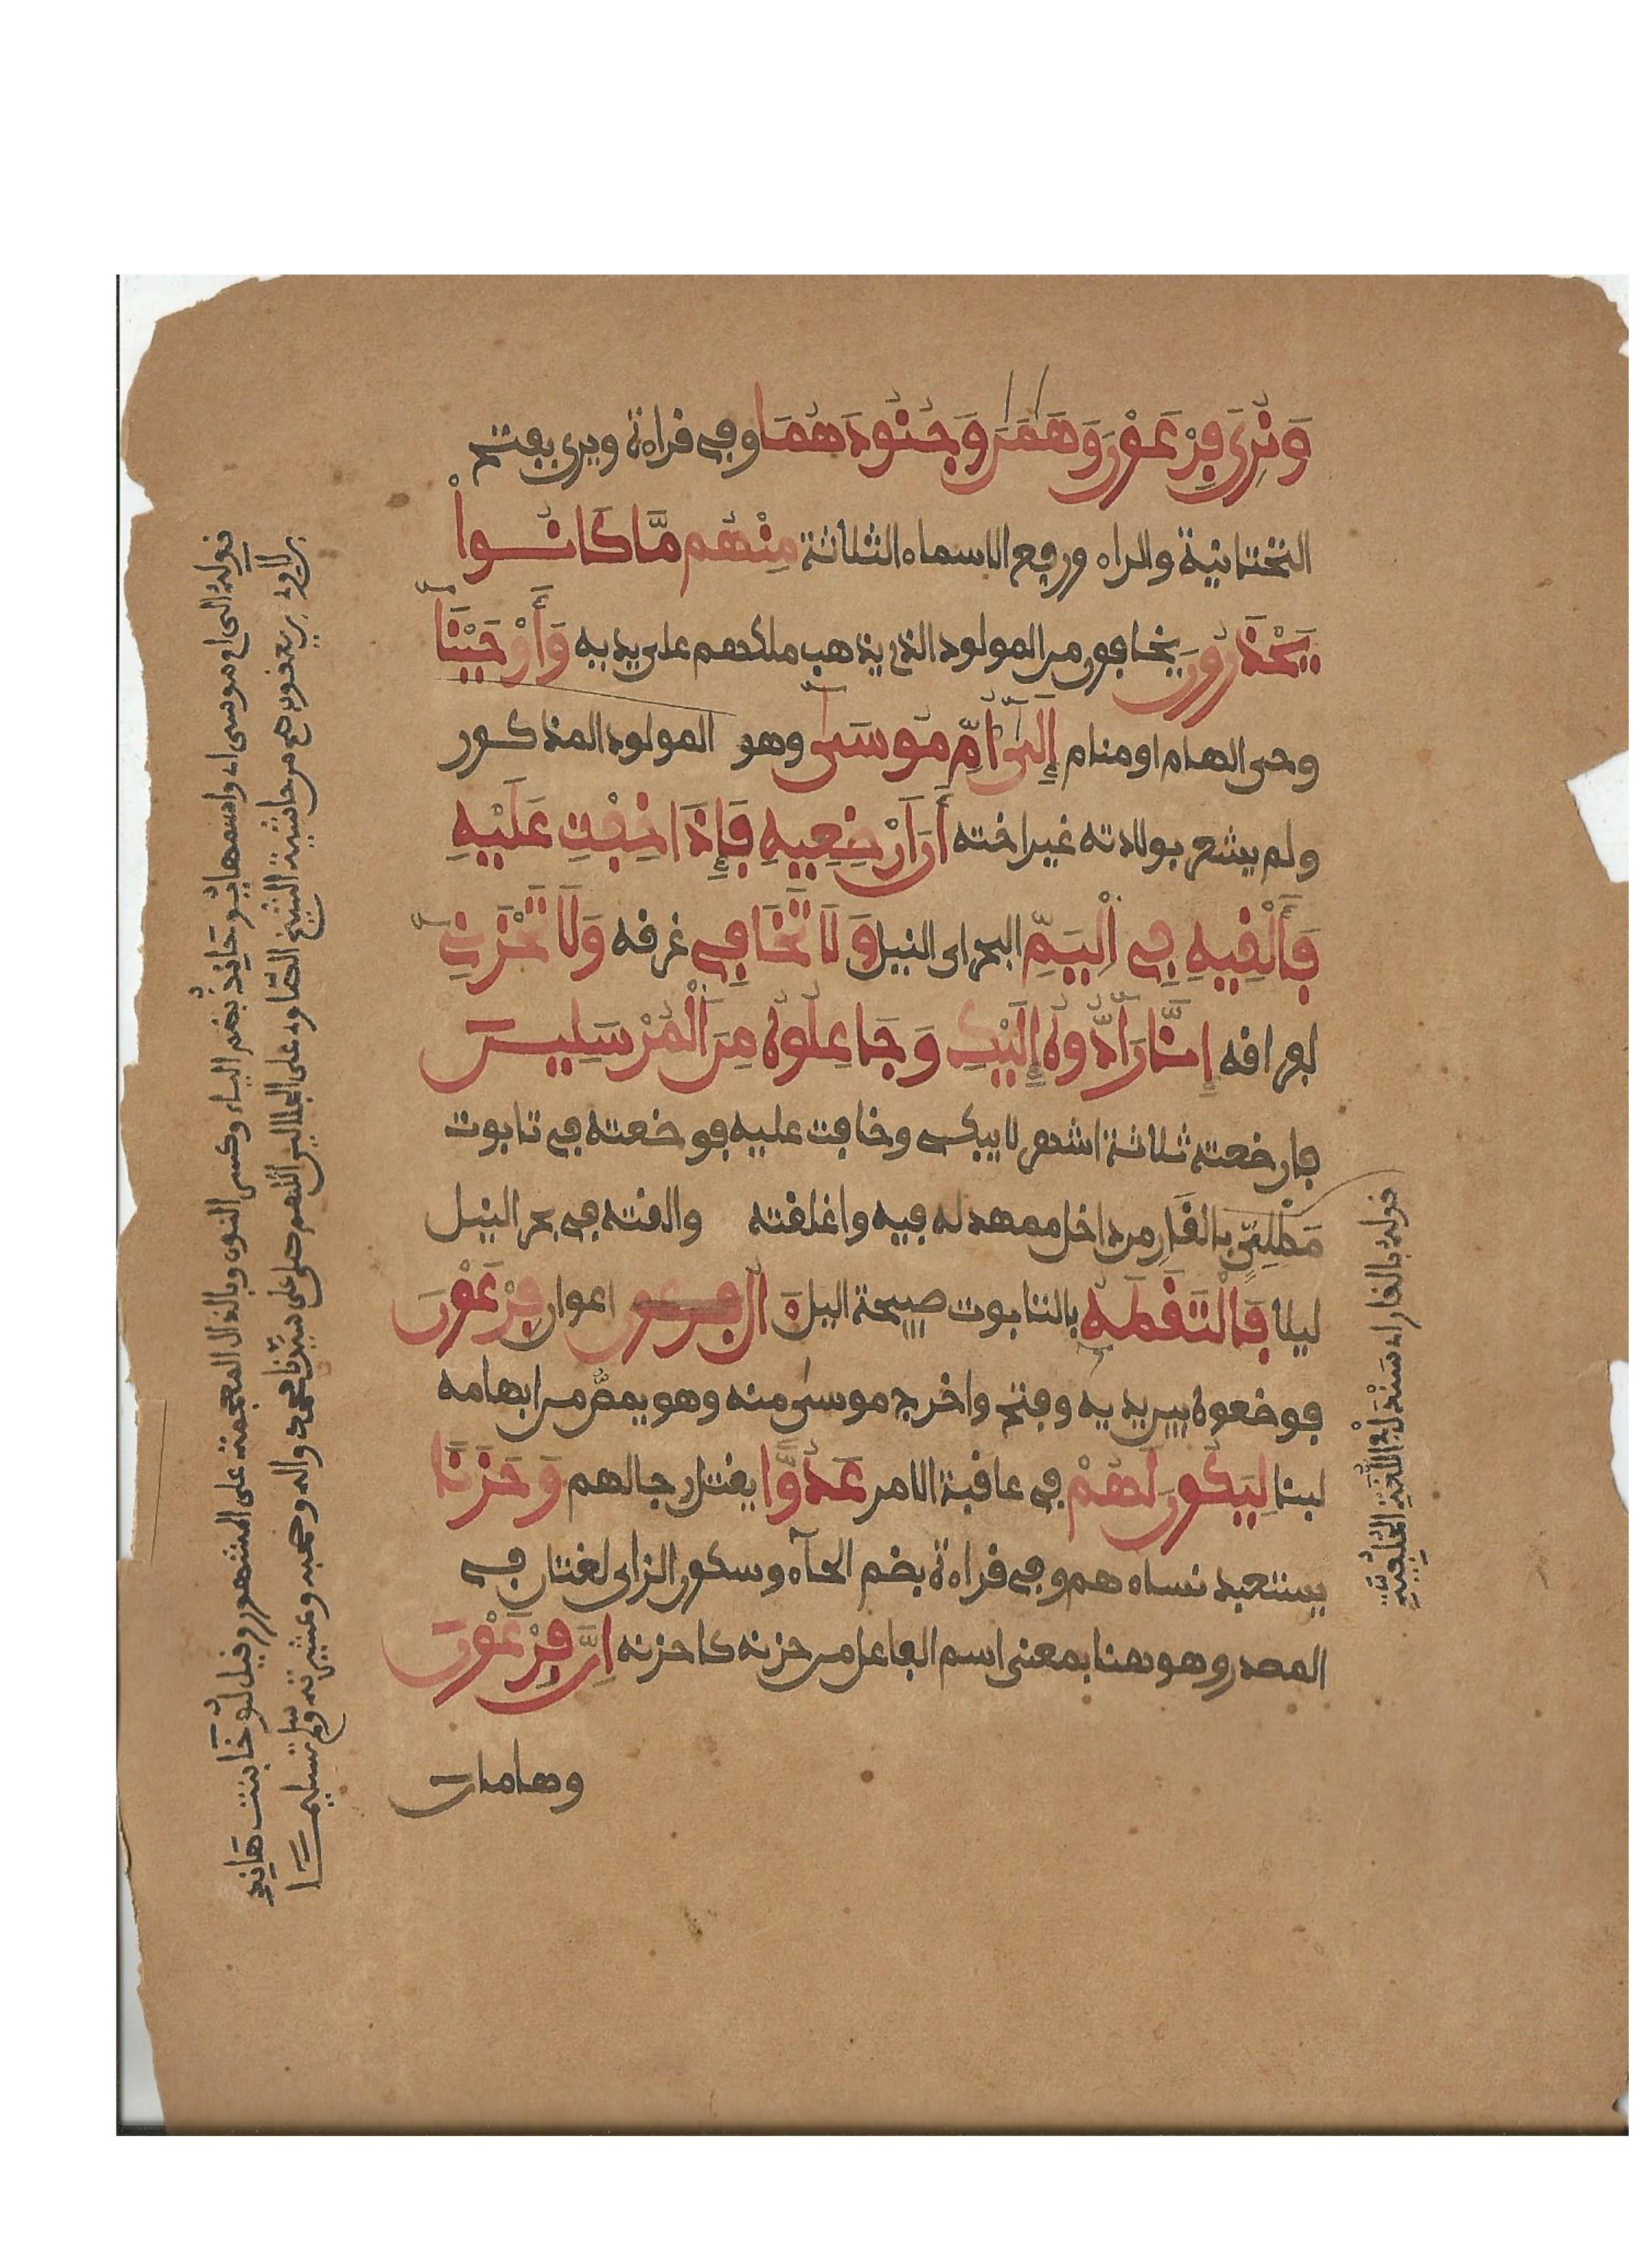 وَنُرِيَ فِرْعَوْنَ وَهَٰمَٰنَ وَجُنُودَهُمَا وفي قراءة ويرى بفتح
التحتانية والراء ورفع الاسماء الثلاثة مِنْهُم مَّا كَانُواْ
يَحْذَرُونَ يخافون من المولود الذي يذهب ملكهم على يديه وَأَوْحَيْنَا
وحي الهام او منام إِلَىٰ أُمِّ مُوسَىٰ وهو المولود المذكور
ولم يشعر بولادته غير اخته أَنْ أَرْضِعِيهِ فَإِذَا خِفْتِ عَلَيْهِ
فَأَلْقِيهِ فِي اِلْيَمِّ البحر اي النيل وَلَا تَخَافِي غرقه وَلَا تَحْزَنِي
لفراقه إِنَّا رَآدُّوهُ إِلَيْكِ وَجَاعِلُوهُ مِنَ اَلْمُرْسَلِينَ
فارضعته ثلاثة اشهر لا يبكى وخافت عليه فوضعته في تابوت
مَطْلِيٍّ بالقَارِ من داخل ممهد له فيه واغلقته والقته في بحر النيل
ليلا فَالْتَقَطَهُ بالتابوت صبيحة اليل ءَالُ فرعون اعوان فِرْعَوْنَ
فوضعوه بين يديه وفتح واخرج موسى منه وهو يمصّ من ابهامه
لبنا لِيَكُونَ لَهُمْ في عاقبة الامر عَدُوّٗا يقتل رجالهم وَحَزَنًا
يستعبد نساءهم وفي قراءة بضم الحآء وسكون الزاي لغتان في
المصدر وهو هنا بمعنى اسم الفاعل من حزنه كاحزنه إِنَّ فِرْعَوْنَ
وهامان
قوله بالقار اه
قوله الى ام موسى اه واسمها يُوحَانِذ بضم الياء وكسر النون وبالذال المعجمة على المشهور وقيل يُوخَا بنت هَانِد
بن لاوي بن يعقوب اهـ من حاشية الشيخ الصاوي على الجلالين اللهم صل على سيدنا محمد واله وصحبه وسلم تسليمًا